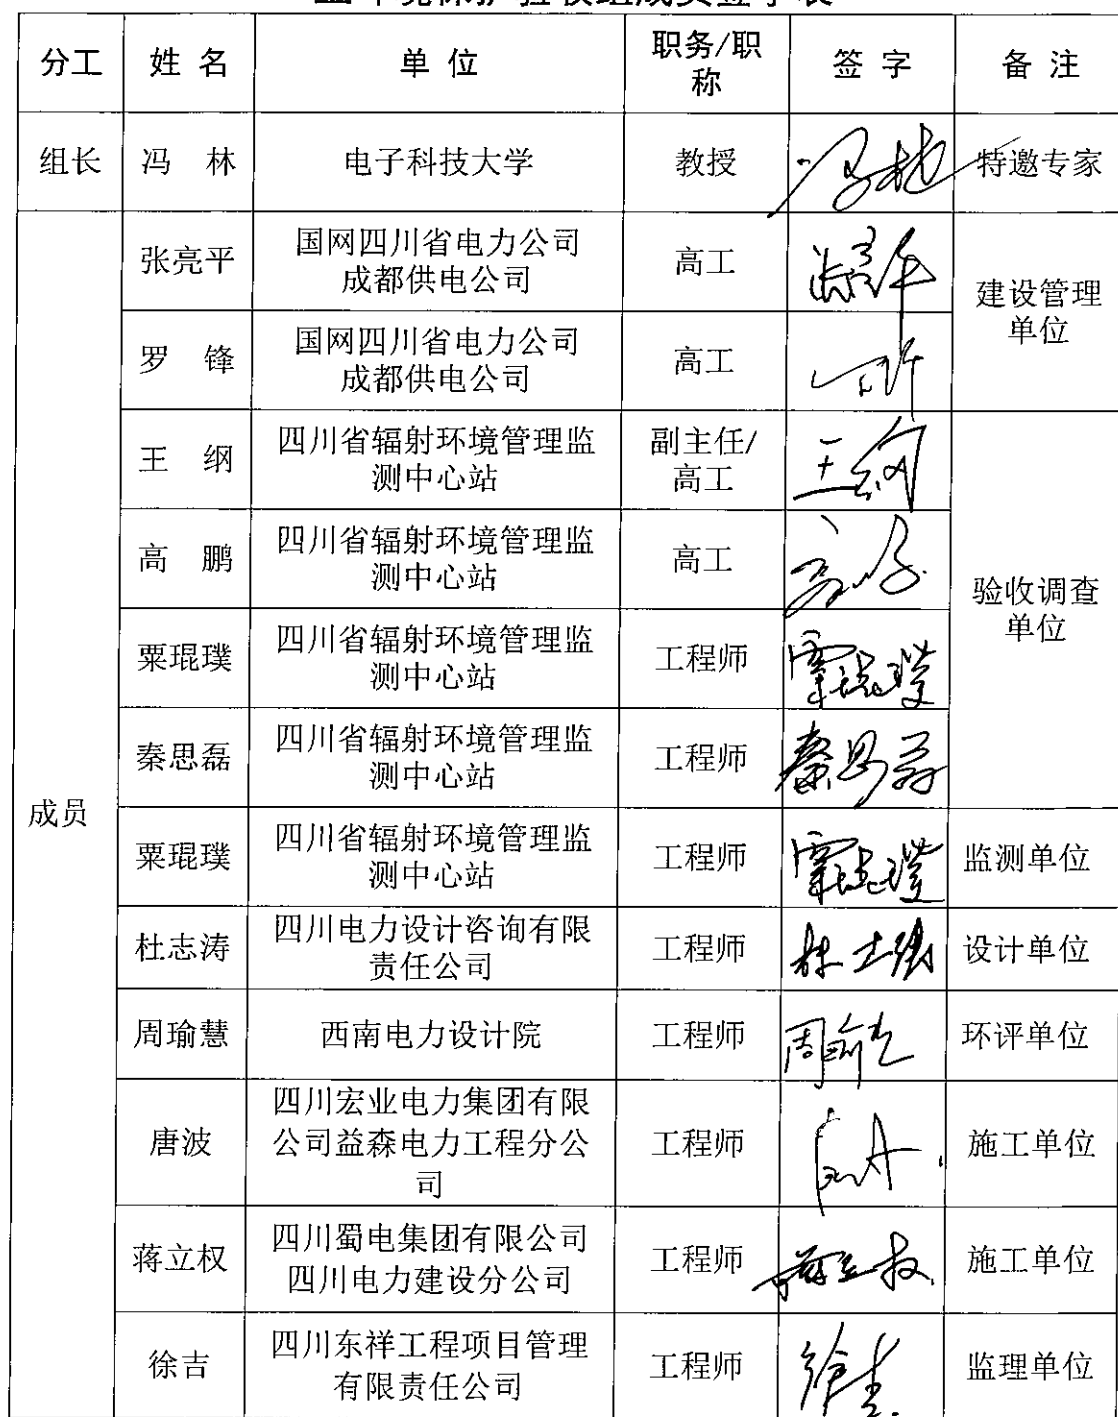 环境保护验收组成员签字表
分工 姓 名 单 位 职务/职称 签 字 备 注
组长 冯 林 电子科技大学 教授 冯林 特邀专家
成员
张亮平 国网四川省电力公司成都供电公司 高工 建设管理单位
罗 锋 国网四川省电力公司成都供电公司 高工
王 纲 四川省辐射环境管理监测中心站 副主任/高工 王纲 验收调查单位
高 鹏 四川省辐射环境管理监测中心站 高工
粟琨璞 四川省辐射环境管理监测中心站 工程师 粟琨璞
秦思磊 四川省辐射环境管理监测中心站 工程师 秦思磊
粟琨璞 四川省辐射环境管理监测中心站 工程师 粟琨璞 监测单位
杜志涛 四川电力设计咨询有限责任公司 工程师 设计单位
周瑜慧 西南电力设计院 工程师 环评单位
唐波 四川宏业电力集团有限公司益森电力工程分公司 工程师 施工单位
蒋立权 四川蜀电集团有限公司四川电力建设分公司 工程师 蒋立权 施工单位
徐吉 四川东祥工程项目管理有限责任公司 工程师 徐吉 监理单位